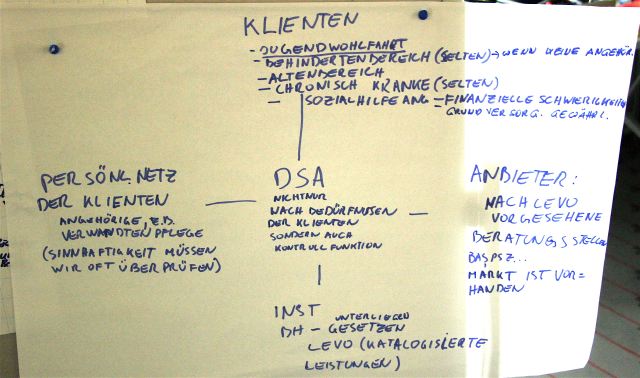 KLIENTEN
- JUGENDWOHLFAHRT
- BEHINDERTENBEREICH (SELTEN) → WENN KEINE ANGEHÖR.
- ALTENBEREICH
- CHRONISCH KRANKE (SELTEN)
- SOZIALHILFE ANG = FINANZIELLE SCHWIERIGKEITEN
= GRUNDVERSORG. GEWÄHRL.
PERSÖNL. NETZ
DER KLIENTEN
ANGEHÖRIGE, Z.B.
VERWANDTENPFLEGE
(SINNHAFTIGKEIT MÜSSEN
WIR OFT ÜBERPRÜFEN)
DSA
NICHT NUR
NACH BEDÜRFNISSEN
DER KLIENTEN
SONDERN AUCH
KONTROLLFUNKTION
ANBIETER:
NACH LEVO
VORGESEHENE
BERATUNGSSTELLEN
BAS, PSZ...
MARKT IST VOR=
HANDEN
INST UNTERLIEGEN
DH - GESETZEN
LEVO (KATALOGISIERTE
LEISTUNGEN)